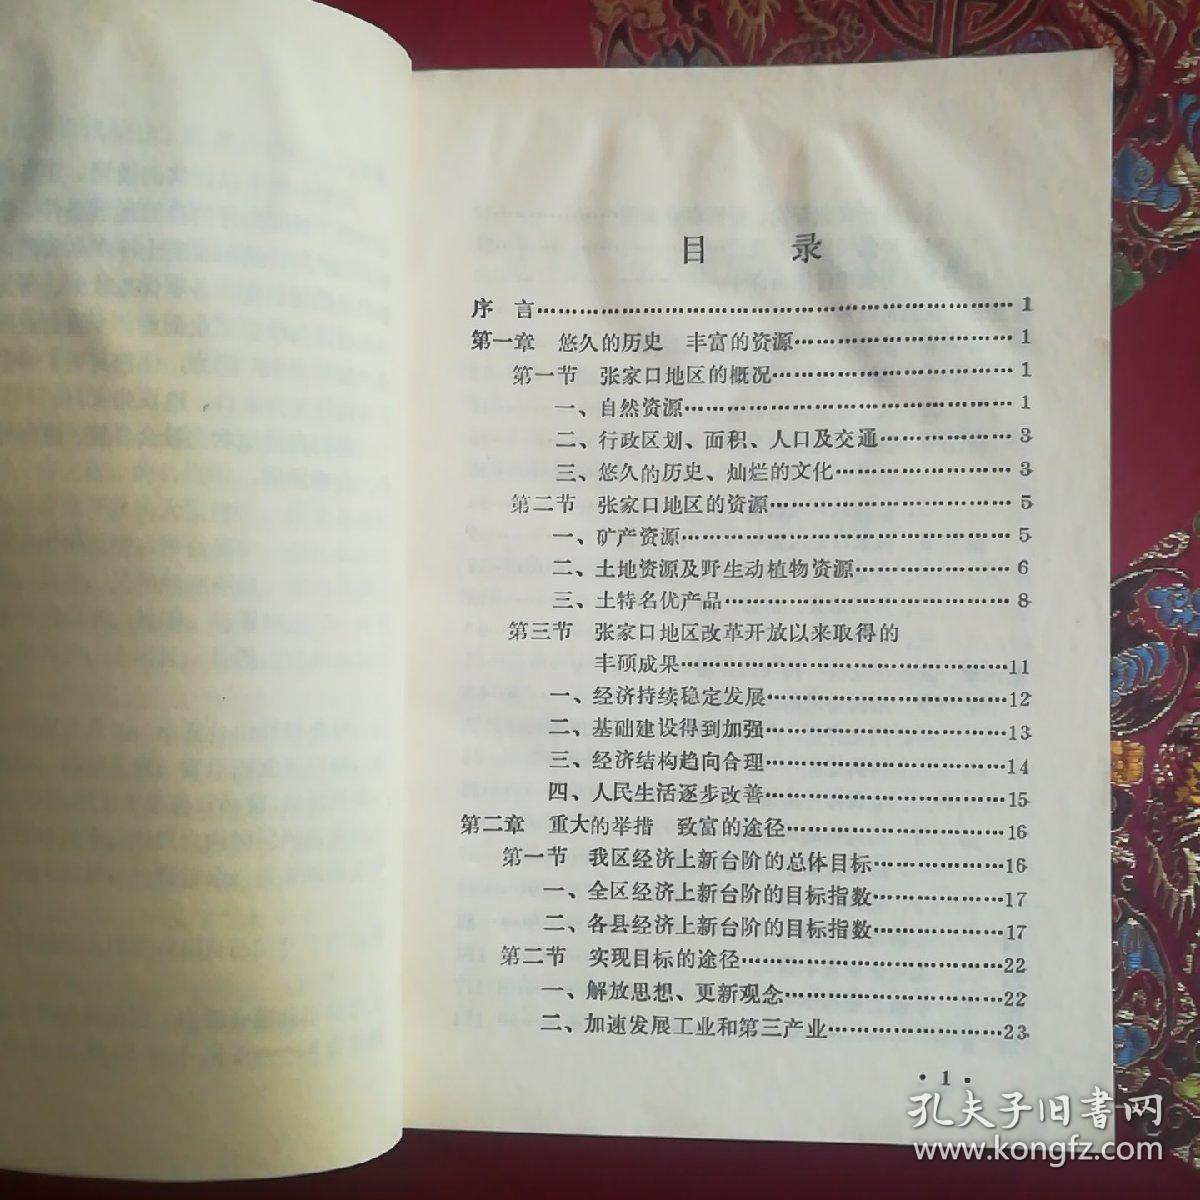 目 录
序 言……………………………………………… 1
第一章 悠久的历史 丰富的资源…………………… 1
第一节 张家口地区的概况……………………… 1
一、自然资源……………………………… 1
二、行政区划、面积、人口及交通…………… 3
三、悠久的历史、灿烂的文化………………… 3
第二节 张家口地区的资源……………………… 5
一、矿产资源……………………………… 5
二、土地资源及野生动植物资源……………… 6
三、土特名优产品…………………………… 8
第三节 张家口地区改革开放以来取得的
丰硕成果………………………………11
一、经济持续稳定发展………………………12
二、基础建设得到加强………………………13
三、经济结构趋向合理………………………14
四、人民生活逐步改善………………………15
第二章 重大的举措 致富的途径……………………16
第一节 我区经济上新台阶的总体目标……………16
一、全区经济上新台阶的目标指数……………17
二、各县经济上新台阶的目标指数……………17
第二节 实现目标的途径…………………………22
一、解放思想、更新观念……………………22
二、加速发展工业和第三产业…………………23
· 1 ·
孔夫子旧书网
www.kongfz.com